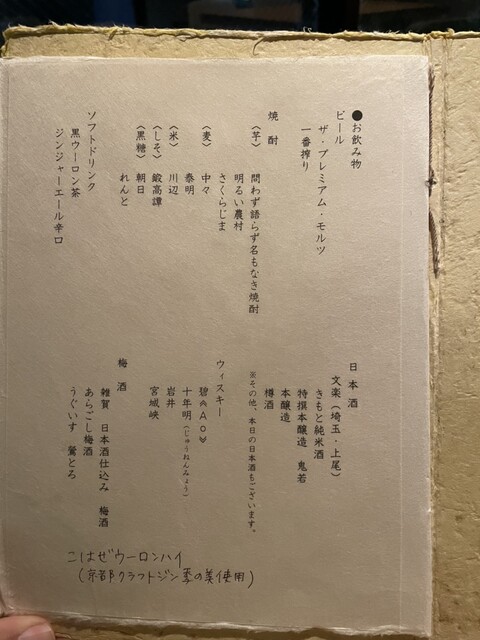 ●お飲み物
ビール
ザ・プレミアム・モルツ
一番搾り
焼酎
（芋） 問わず語らず名もなき焼酎
明るい農村
さくらじま
（麦） 中々
泰明
（米） 川辺
（しそ） 鍛高譚
（黒糖） 朝日
れんと
ソフトドリンク
黒ウーロン茶
ジンジャーエール辛口
日本酒
文楽（埼玉・上尾）
きもと純米酒
特撰本醸造 鬼若
本醸造
樽酒
※その他、本日の日本酒もございます。
ウィスキー
碧《Ao》
十年明（じゅうねんみょう）
岩井
宮城峡
梅酒
雑賀 日本酒仕込み 梅酒
あらごし梅酒
うぐいす 鶯とろ
こはぜウーロンハイ
（京都クラフトジン季の美使用）